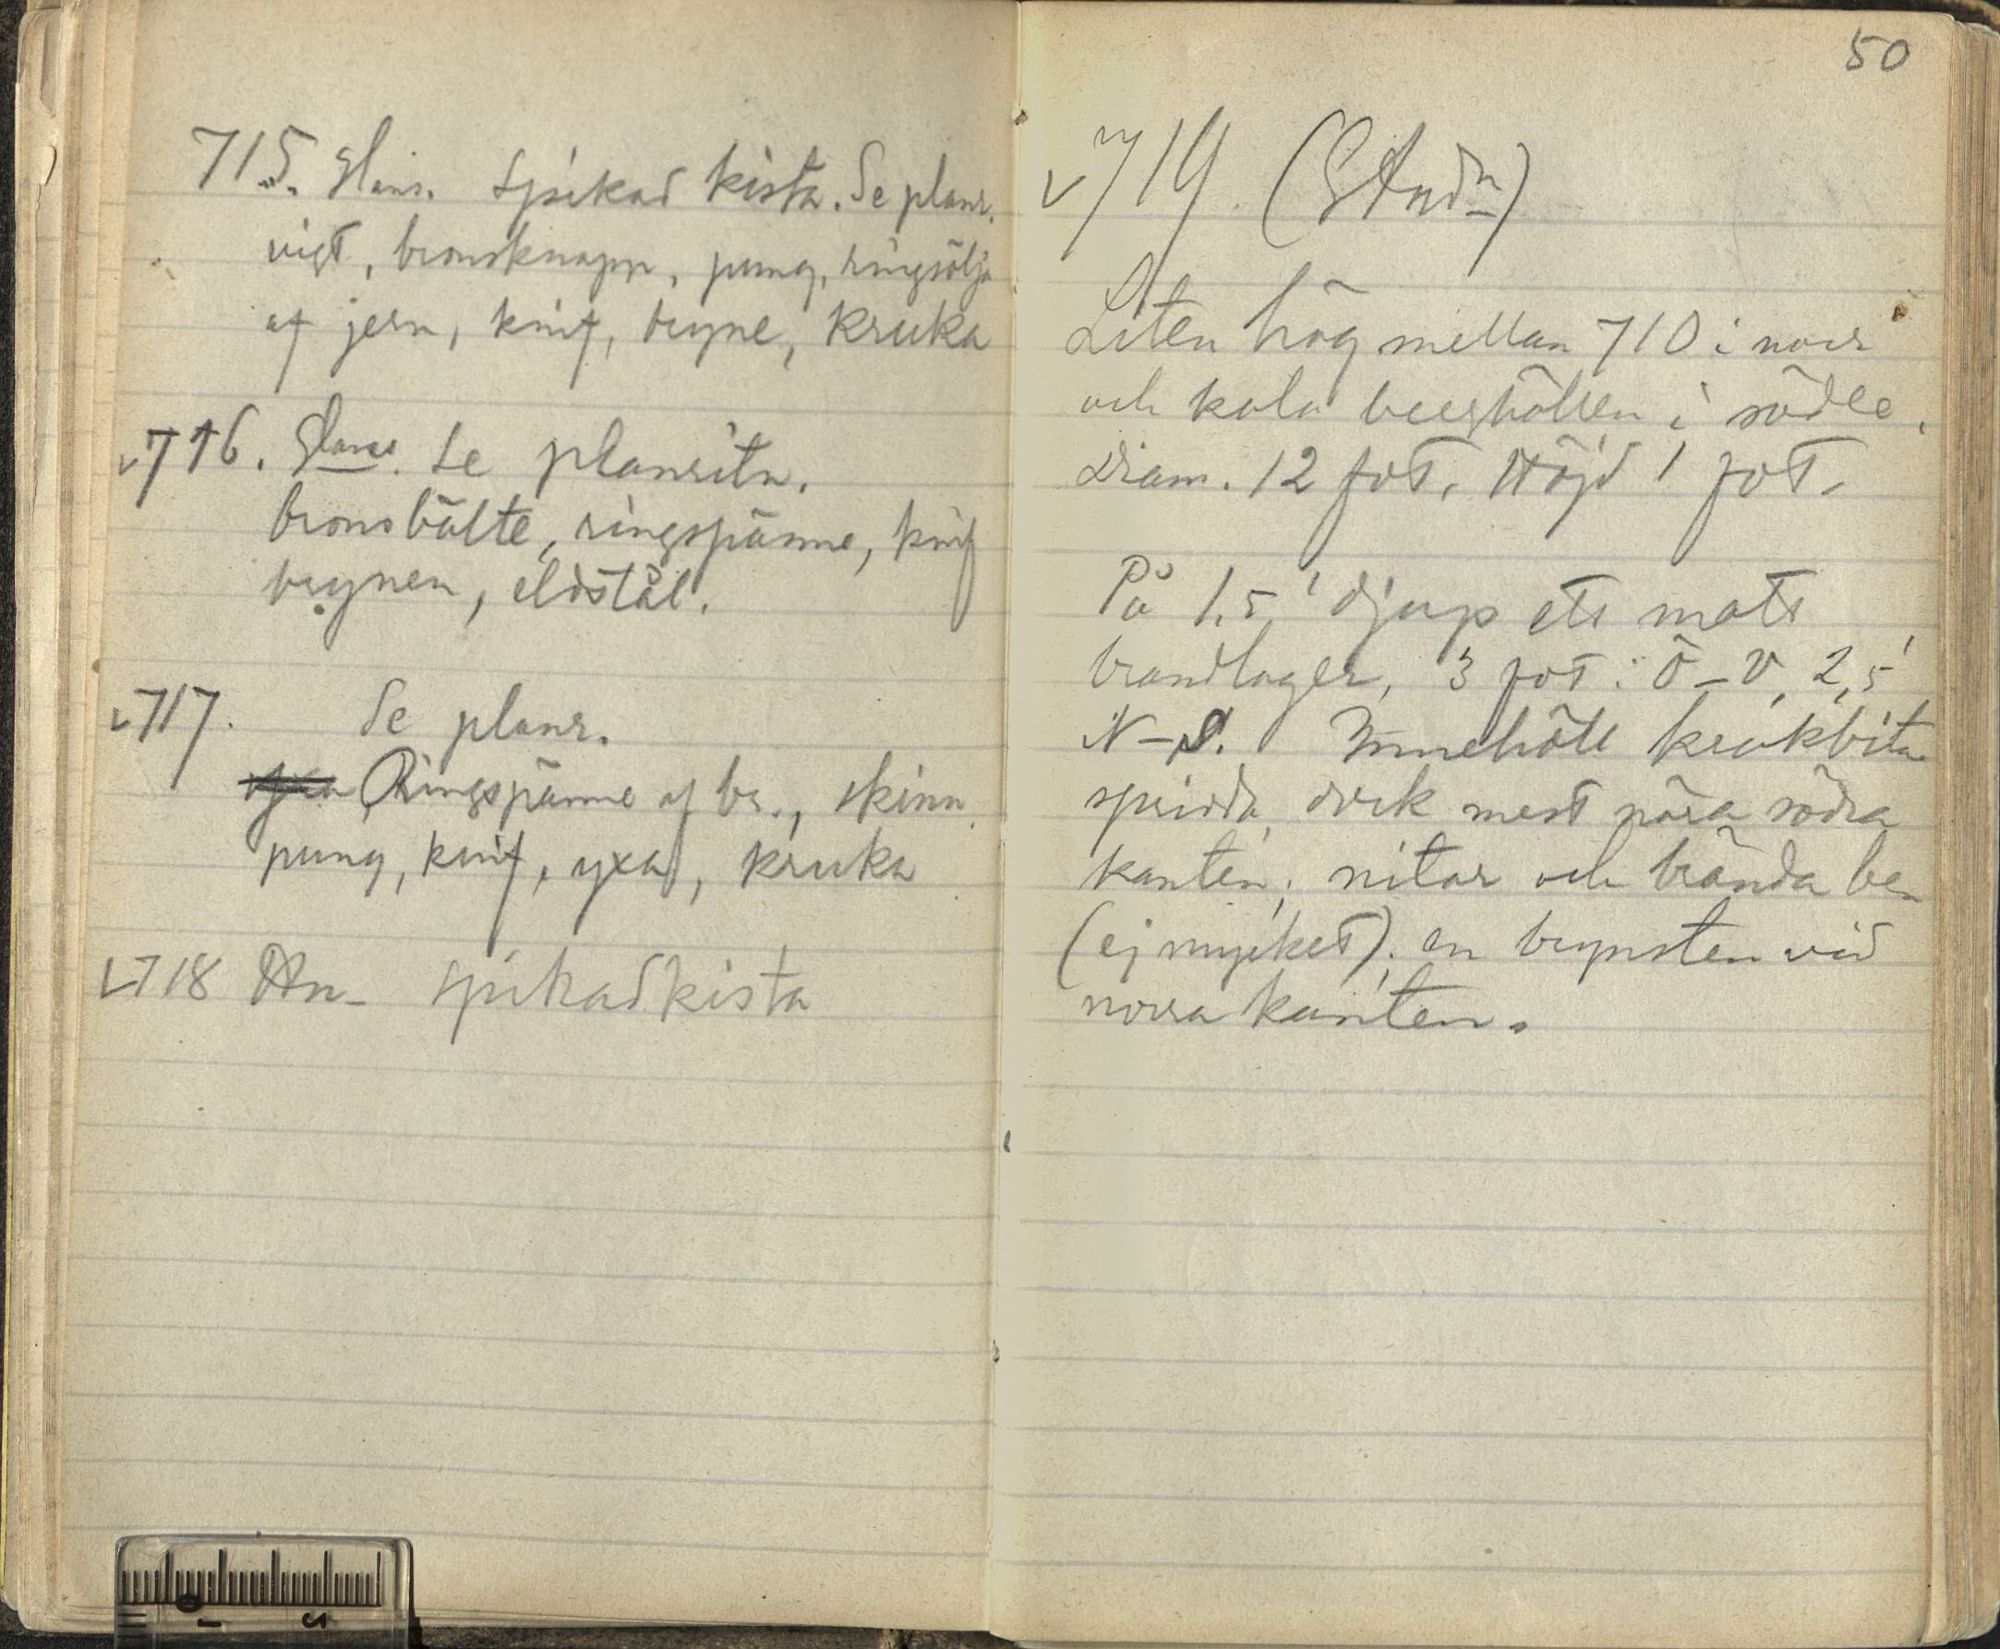 715. Hans. Spikad kista. Se planr.
vigt, bronsknapp, pung, ringsölja
af jern, knif, bryne, kruka
716. Se planritn.
bronsbälte, ringspänne, knif
brynen, eldstål.
717. Se planr.
Ringspänne af br., skinn
pung, knif, yxa, kruka
718 spikad kista
50
719. (Stud.)
Liten hög mellan 710 i norr
och kala berghällen i söder.
Diam. 12 fot. Höjd 1 fot.
På 1,5' djup ett matt
brandlager, 3 fot i Ö–V, 2,5'
N–S. Innehöll krukbitar
spridda, dock mest nära södra
kanten, nitar och brända ben
(ej mycket); en brynsten vid
norra kanten.